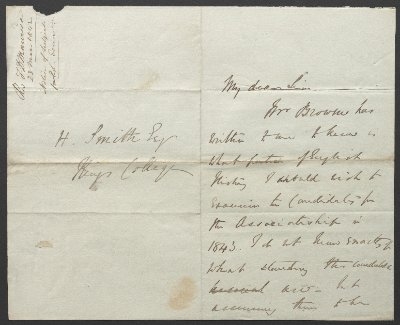 H. Smith Esq
Kings College
My dear Sir
Mr Browne has
written to me to know in
what portion of English
History I would wish to
examine the Candidates for
the Associateship in
1843. I do not know exactly
what standing the candidates
are but
assuming them to be